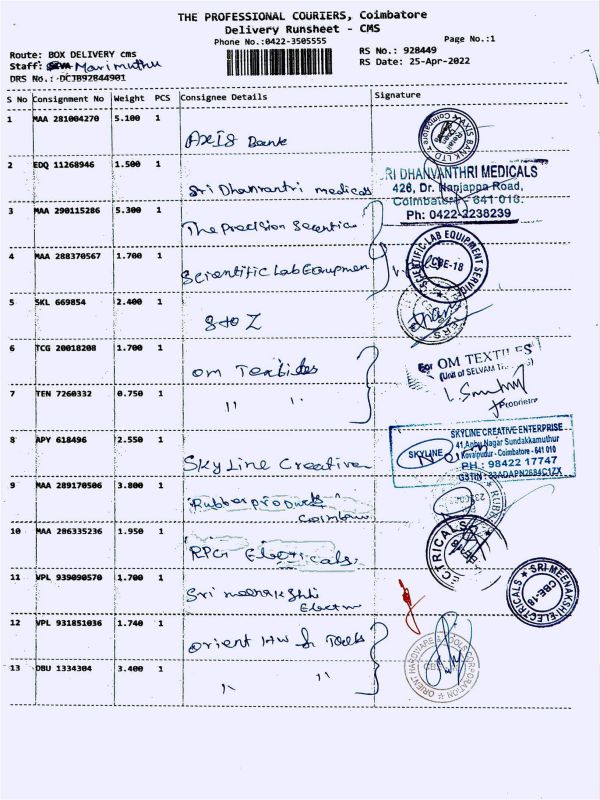 THE PROFESSIONAL COURIERS, Coimbatore
Delivery Runsheet - CMS
Phone No.:0422-3505555
Page No.:1
Route: BOX DELIVERY cms
RS No.: 928449
Staff: Marimuthu
RS Date: 25-Apr-2022
DRS No.: DCJB92844901
S No Consignment No Weight PCS Consignee Details Signature
1 MAA 281004270 5.100 1 AXIS Bank
AXIS BANK LTD
2 EDQ 11268946 1.500 1 Sri Dhanvantri medicals
SRI DHANVANTHRI MEDICALS
426, Dr. Nanjappa Road,
Coimbatore - 641 018.
Ph: 0422-2238239
3 MAA 290115286 5.300 1 The Precision Scientific
4 MAA 288370567 1.700 1 Scientific Lab Equipmen
SCIENTIFIC LAB EQUIPMENT SERVICE
CBE-18
5 SKL 669854 2.400 1 S to Z
6 TCG 20018208 1.700 1 Om Textiles
For OM TEXTILES
(Unit of SELVAM
Proprietor
7 TEN 7260332 0.750 1 " "
8 APY 618496 2.550 1 SkyLine Creative
SKYLINE
SKYLINE CREATIVE ENTERPRISE
41, Anbu Nagar Sundakkamuthur
Kovaipudur - Coimbatore - 641 010
PH : 98422 17747
GSTIN : 33ADAPN2684C1ZX
9 MAA 289170506 3.800 1 Rubber products
Coimbatore
10 MAA 286335236 1.950 1 RPG Electricals
ELECTRICALS
11 VPL 939090570 1.700 1 Sri meenakshi
Electri
SRI MEENAKSHI ELECTRICALS
CBE-18
12 VPL 931851036 1.740 1 Orient HW & Tools
ORIENT HARDWARE & TOOLS CORPORATION
13 DBU 1334304 3.400 1 " "